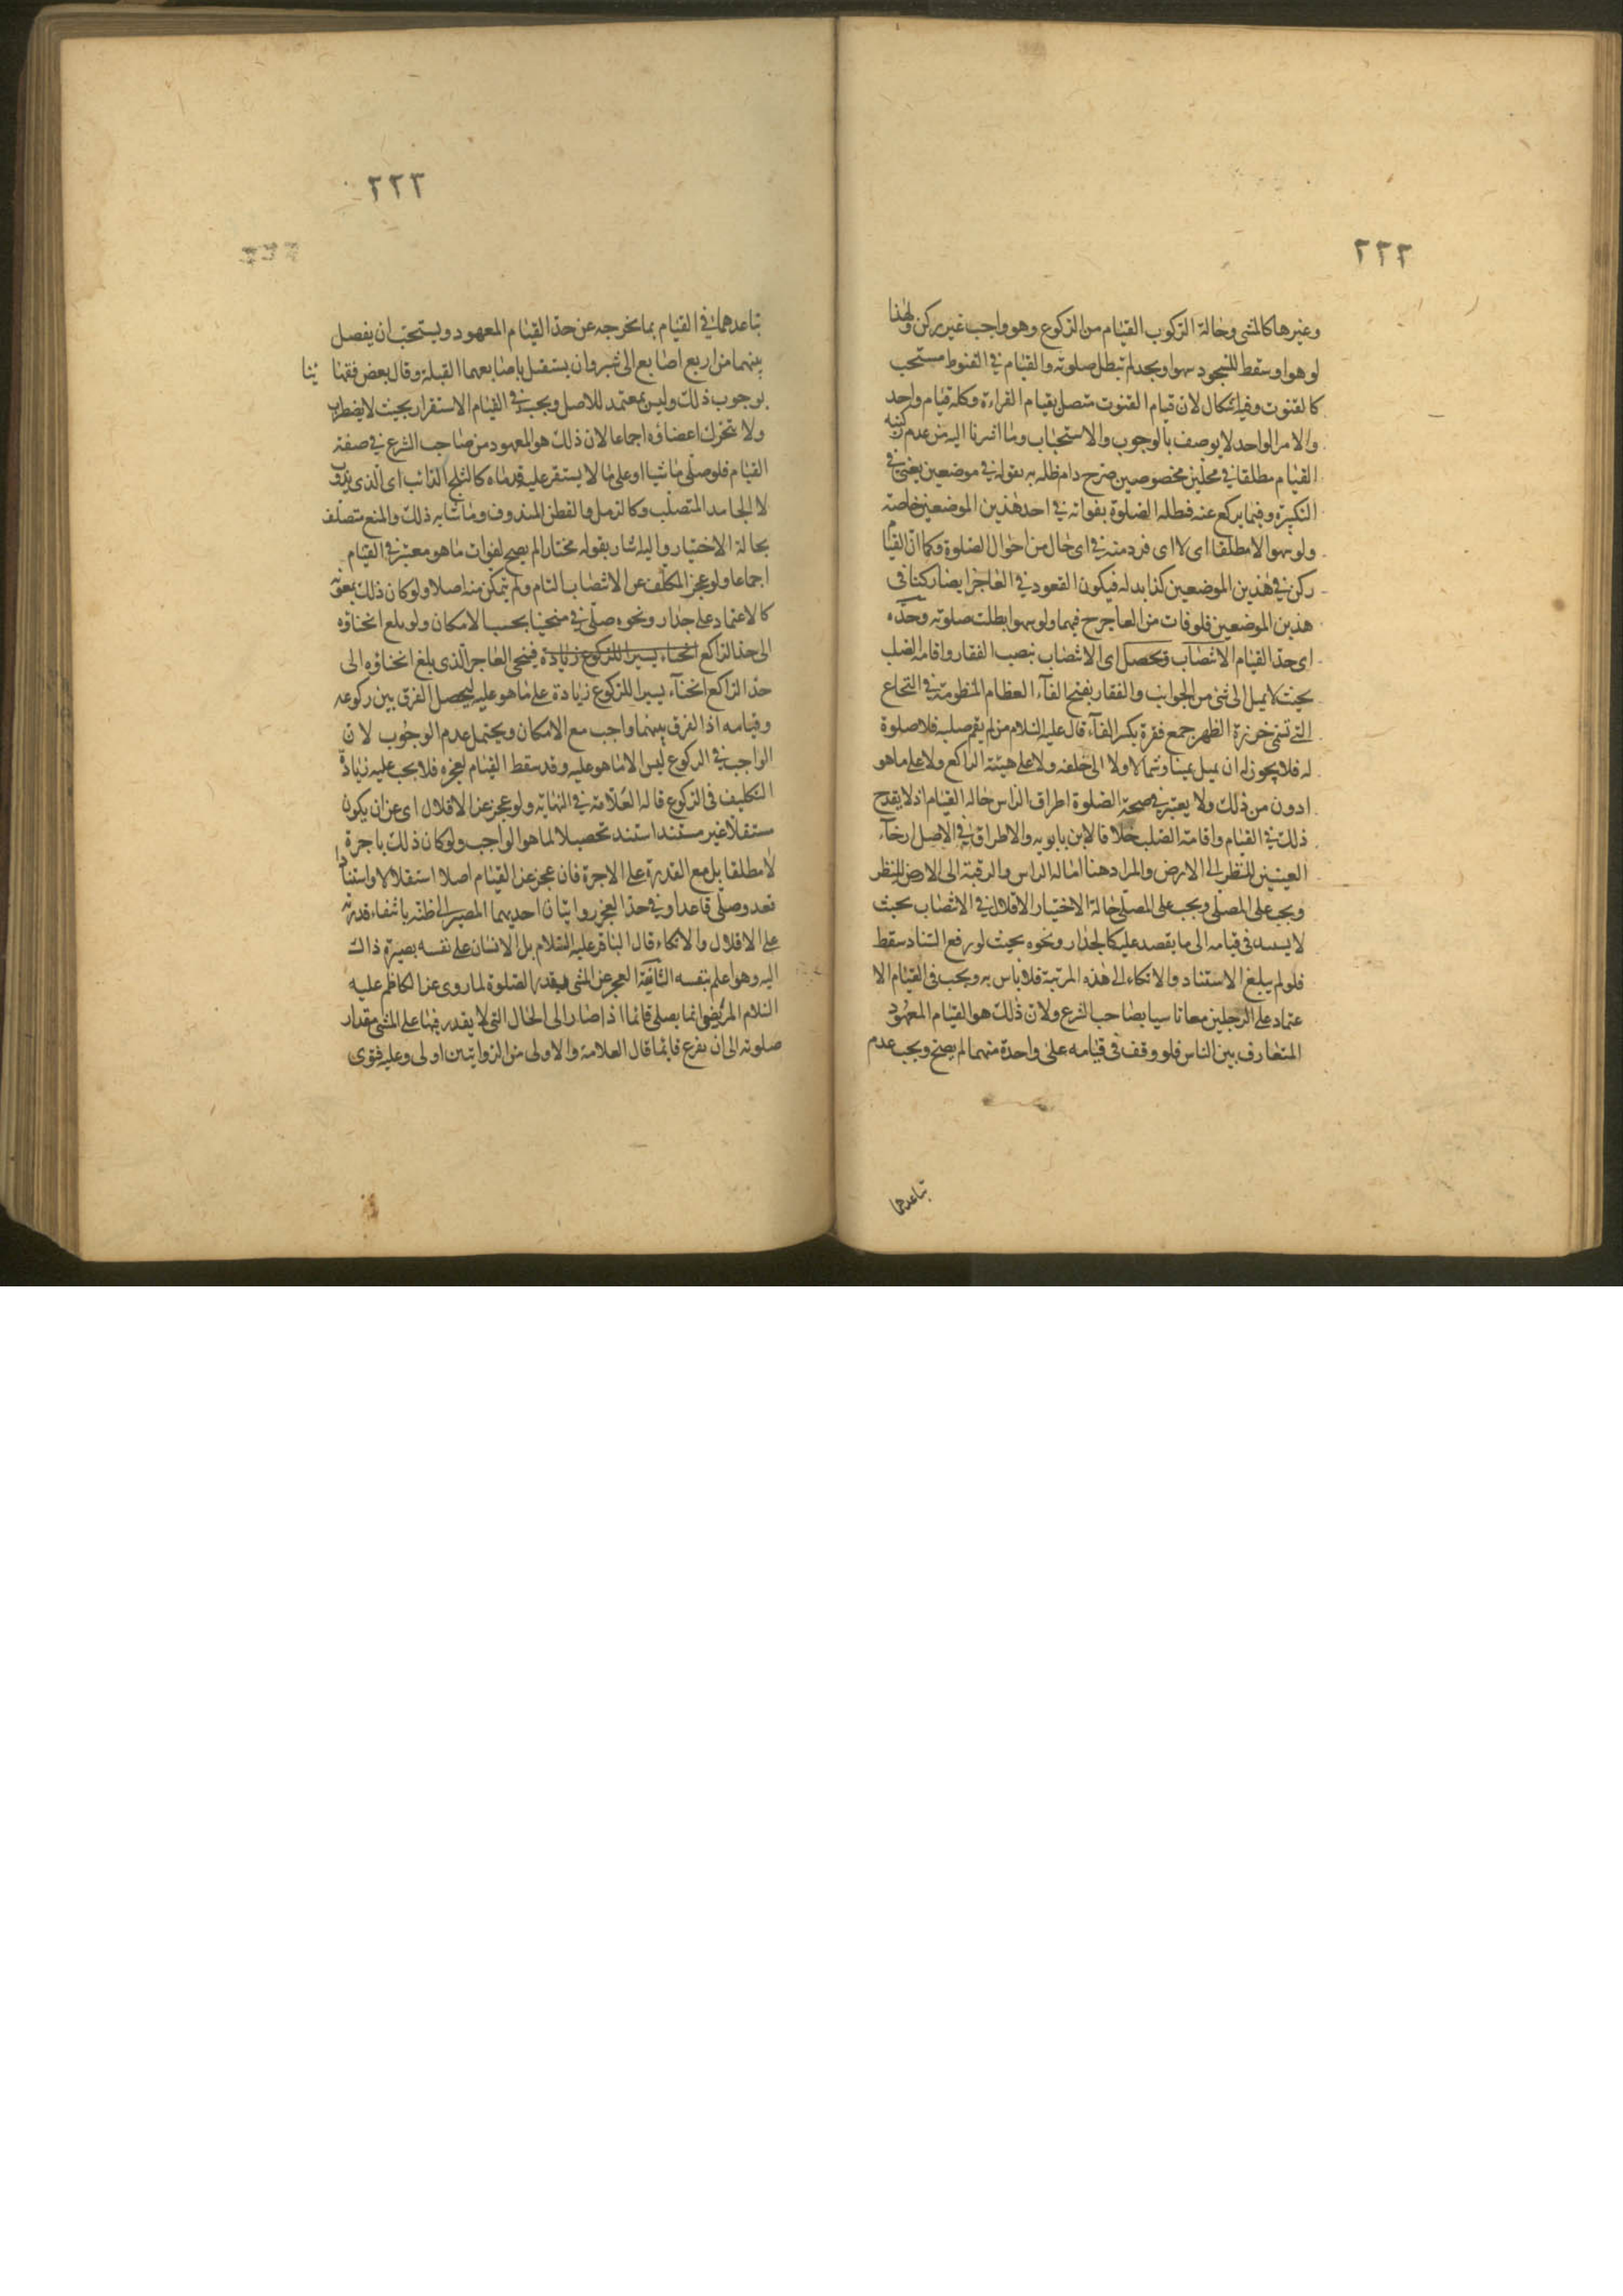 ٢٢٢
وغيرها كالمشي وحالة الركوب القيام من الركوع وهو واجب غير ركن ولهذا
لو هوا وسقط للسجود سهوا ويجد لم تبطل صلوته والقيام في القنوط مستحب
كالقنوت وفيه اشكال لان قيام القنوت متصل بقيام القراءة وكله قيام واحد
والامر الواحد لا يوصف بالوجوب والاستحباب وما اشرنا اليه من عدم ركنية
القيام مطلقا في محلين مخصوصين صرح دام ظله به بقوله في موضعين يعني في
التكبيرة وفيما يركع عنه فطله الصلوة بفواته في احد هذين الموضعين خاصة
ولو سهوا لا مطلقا اي لا اي فرد منه في اي حال من احوال الصلوة وكما ان القيام
ركن في هذين الموضعين كذا بدله فيكون القعود في العاجز ايضا ركنا في
هذين الموضعين فلو فات من العاجز ح فيهما ولو سهوا بطلت صلوته وحده
اي حد القيام الانتصاب وتحصل اي الانتصاب بنصب الفقار واقامة الصلب
بحيث لا يميل الى شئ من الجوانب والفقار بفتح الفآء العظام المنظومة في النخاع
التي تسمى خرزة الظهر جمع فقرة بكسر الفآء قال عليه السلام من لم يقم صلبه فلا صلوة
له فلا يجوز له ان يميل يمينا وشمالا ولا الى خلفه ولا على هيئة الراكع ولا على ما هو
ادون من ذلك ولا يعتبر في صحة الصلوة اطراق الراس حالة القيام اذ لا يقدح
ذلك في القيام واقامة الصلب خلافا لابن بابويه والاطراق في الاصل ارخآء
العينين للنظر الى الارض والمراد هنا امالة الراس والرقبة الى الارض للنظر
ويجب على المصلي ويجب على المصلي حالة الاختيار الاقلال في الانتصاب بحيث
لا يستند في قيامه الى ما يقصد عليه كالجدار ونحوه بحيث لو رفع السناد سقط
فلو لم يبلغ الاستناد والاتكاء الى هذه المرتبة فلا باس به ويجب في القيام الا
عتماد على الرجلين معا تاسيا بصاحب الشرع ولان ذلك هو القيام المعهود
المتعارف بين الناس فلو وقف في قيامه على واحدة منهما لم يصح ويجب عدم
تباعدهما
٢٢٢
تباعدهما في القيام بما يخرجه عن حد القيام المعهود ويستحب ان يفصل
بينهما من اربع اصابع الى شبر وان يستقبل باصابعهما القبلة وقال بعض فقهائنا
بوجوب ذلك وليس بمعتمد للاصل ويجب في القيام الاستقرار بحيث لا يضطرب
ولا يتحرك اعضاؤه اجماعا لان ذلك هو المعهود من صاحب الشرع في صفة
القيام فلو صلى ماشيا او على ما لا يستقر عليه قدماه كالثلج الذائب اي الذي يذوب
لا الجامد المتصلب وكالرمل والقطن المندوف وما شابه ذلك والمنع متصف
بحالة الاختيار واليه اشار بقوله مختارا لم يصح لفوات ما هو معتبر في القيام
اجماعا ولو عجز المكلف عن الانتصاب التام ولم يتمكن منه اصلا ولو كان ذلك بمعونة
كالاعتماد على جدار ونحوه صلى في منحنيا بحسب الامكان ولو بلغ انحناؤه
الى حد الراكع انحناء يسيرا للركوع زيادة فينحي العاجز الذي بلغ انحناؤه الى
حد الراكع انحنآء يسيرا للركوع زيادة على ما هو عليه ليحصل الفرق بين ركوعه
وقيامه اذ الفرق بينهما واجب مع الامكان ويحتمل عدم الوجوب لان
الواجب في الركوع ليس الا ما هو عليه وقد سقط القيام لعجزه فلا يجب عليه زيادة
التكليف في الركوع قاله العلامة في النهاية ولو عجز عن الاقلال اي عن ان يكون
مستقلا غير مستند استند تحصيلا لما هو الواجب ولو كان ذلك باجرة
لا مطلقا بل مع القدرة على الاجرة فان عجز عن القيام اصلا استقلالا واستنادا
قعد وصلى قاعدا وفي حد العجز روايتان احديهما المصير الى ظنه بانتفاء قدرته
على الاقلال والاتكاء قال الباقر عليه السلام بل الانسان على نفسه بصيرة ذاك
اليه وهو اعلم بنفسه الثانية العجز عن المشي بقدر الصلوة لما روى عن الكاظم عليه
السلام المريض انما يصلي قائما اذا صار الى الحال التي لا يقدر فيها على المشي مقدار
صلوته الى ان يفرغ قائما قال العلامة والاولى من الروايتين اولى وعليه فتوى